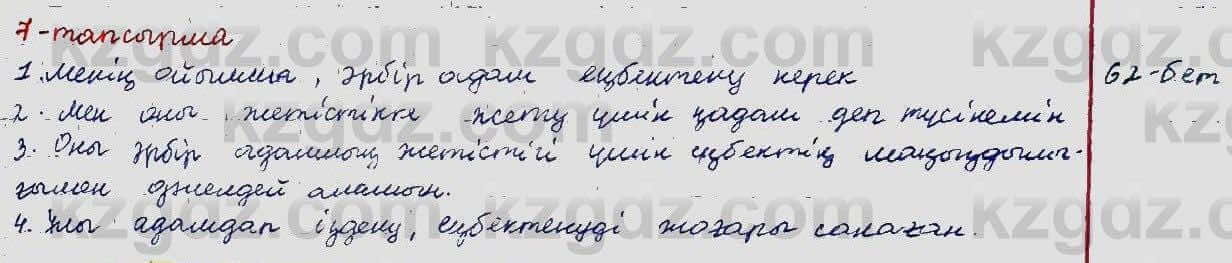 7-тапсырма
1. Менің ойымша, әрбір адам еңбектену керек
62-бет
2. Мен оны жетістікке жету үшін қадам деп түсінемін
3. Оны әрбір адамның жетістігі үшін еңбектің маңыздылы-
ғымен дәлелдей аламын.
4. Ұлы адамдар іздену, еңбектенуді жоғары санаған.
kzgdz.com